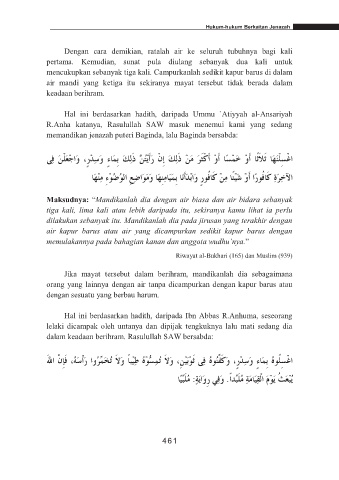 Hukum-hukum Berkaitan Jenazah
Dengan cara demikian, ratalah air ke seluruh tubuhnya bagi kali
pertama. Kemudian, sunat pula diulang sebanyak dua kali untuk
mencukupkan sebanyak tiga kali. Campurkanlah sedikit kapur barus di dalam
air mandi yang ketiga itu sekiranya mayat tersebut tidak berada dalam
keadaan berihram.
Hal ini berdasarkan hadith, daripada Ummu `Atiyyah al-Ansariyah
R.Anha katanya, Rasulullah SAW masuk menemui kami yang sedang
memandikan jenazah puteri Baginda, lalu Baginda bersabda:
اغْسِلْنَهَا ثَلَاثًا أَوْ خَمْسًا أَوْ أَكْثَرَ مِنْ ذَلِكَ إِنْ رَأَيْتُنَّ ذَلِكَ بِمَاءٍ وَسِدْرٍ، وَاجْعَلْنَ فِى
الْآخِرَةِ كَافُورًا أَوْ شَيْئًا مِنْ كَافُورٍ وَابْدَأْنَ بِمَيَامِنِهَا وَمَوَاضِعِ الْوُضُوْءِ مِنْهَا
Maksudnya: “Mandikanlah dia dengan air biasa dan air bidara sebanyak
tiga kali, lima kali atau lebih daripada itu, sekiranya kamu lihat ia perlu
dilakukan sebanyak itu. Mandikanlah dia pada jirusan yang terakhir dengan
air kapur barus atau air yang dicampurkan sedikit kapur barus dengan
memulakannya pada bahagian kanan dan anggota wudhu’nya.”
Riwayat al-Bukhari (165) dan Muslim (939)
Jika mayat tersebut dalam berihram, mandikanlah dia sebagaimana
orang yang lainnya dengan air tanpa dicampurkan dengan kapur barus atau
dengan sesuatu yang berbau harum.
Hal ini berdasarkan hadith, daripada Ibn Abbas R.Anhuma, seseorang
lelaki dicampak oleh untanya dan dipijak tengkuknya lalu mati sedang dia
dalam keadaan berihram. Rasulullah SAW bersabda:
اغْسِلُوهُ بِمَاءٍ وَسِدْرٍ، وَكَفِّنُوهُ فِى ثَوْبَيْنِ، وَلاَ تُمِسُّوْهُ طِيْبًا وَلاَ تُخَمِّرُوا رَأْسَهُ، فَإِنَّ اللهَ
يُبْعَثُ يَوْمَ الْقِيَامَةِ مُلَبِّدًا. وَفِي رِوَايَةٍ: مُلَبِّيًا
461